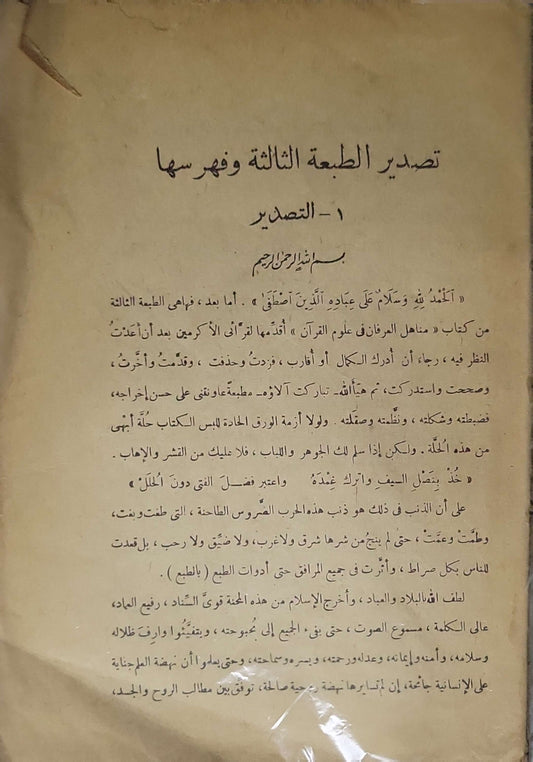 تصدير الطبعة الثالثة وفهرسها
١ - التصدير
بسم الله الرحمن الرحيم
« اَلْحَمْدُ لِلهِ وَسَلَامٌ عَلَى عِبَادِهِ الَّذِينَ اصْطَفَى » . أما بعد ، فهاهى الطبعة الثالثة
من كتاب « مناهل العرفان فى علوم القرآن » أقدّمها لقرّائى الأكرمين بعد أن أعَدْتُ
النظر فيه ، رجاء أن أدرك الكمال أو أقارب ، فزدتُ وحذفت ، وقدَّمتُ وأخَّرتُ ،
وصححت واستدركت، ثم هيّأ الله - تباركت آلاؤه - مطبعةً عاونتنى على حسن إخراجه،
فضبطته وشكلته ، ونظَّمته وصقلَته . ولولا أزمة الورق الحادة للبس الكتاب حُلَّة أبْهى
من هذه الحُلَّة . ولكن إذا سلم لك الجوهر واللباب ، فلا عليك من القشر والإهاب .
« خُذْ بِنَصْلِ السيفِ واترك غِمْدَهُ واعتبر فضـل الفتى دونَ الْحُلَلْ »
على أن الذنب فى ذلك هو ذنب هذه الحرب الضَّروس الطاحنة ، التى طغت وبغت،
وطمَّتْ وعمَّتْ ، حتى لم ينجُ من شرها شرق ولا غرب، ولا ضيِّق ولا رحب ، بل قعدت
للناس بكل صراط ، وأثَّرت فى جميع المرافق حتى أدوات الطبع ( بالطبع ) .
لطف الله بالبلاد والعباد ، وأخرج الإسلام من هذه المحنة قوىَّ السِّناد ، رفيع العماد،
عالى الكلمة ، مسموع الصوت ، حتى يفىء الجميع إلى بُحبوحته ، ويتفيَّئوا وارِفَ ظلاله
وسلامه ، وأمنه وإيمانه ، وعدله ورحمته ، ويسره وسماحته ، وحتى يعلموا أن نهضة العلم جناية
على الإنسانية جائحة، إن لم تسايرها نهضة روحية صالحة، توفق بين مطالب الروح والجسد،